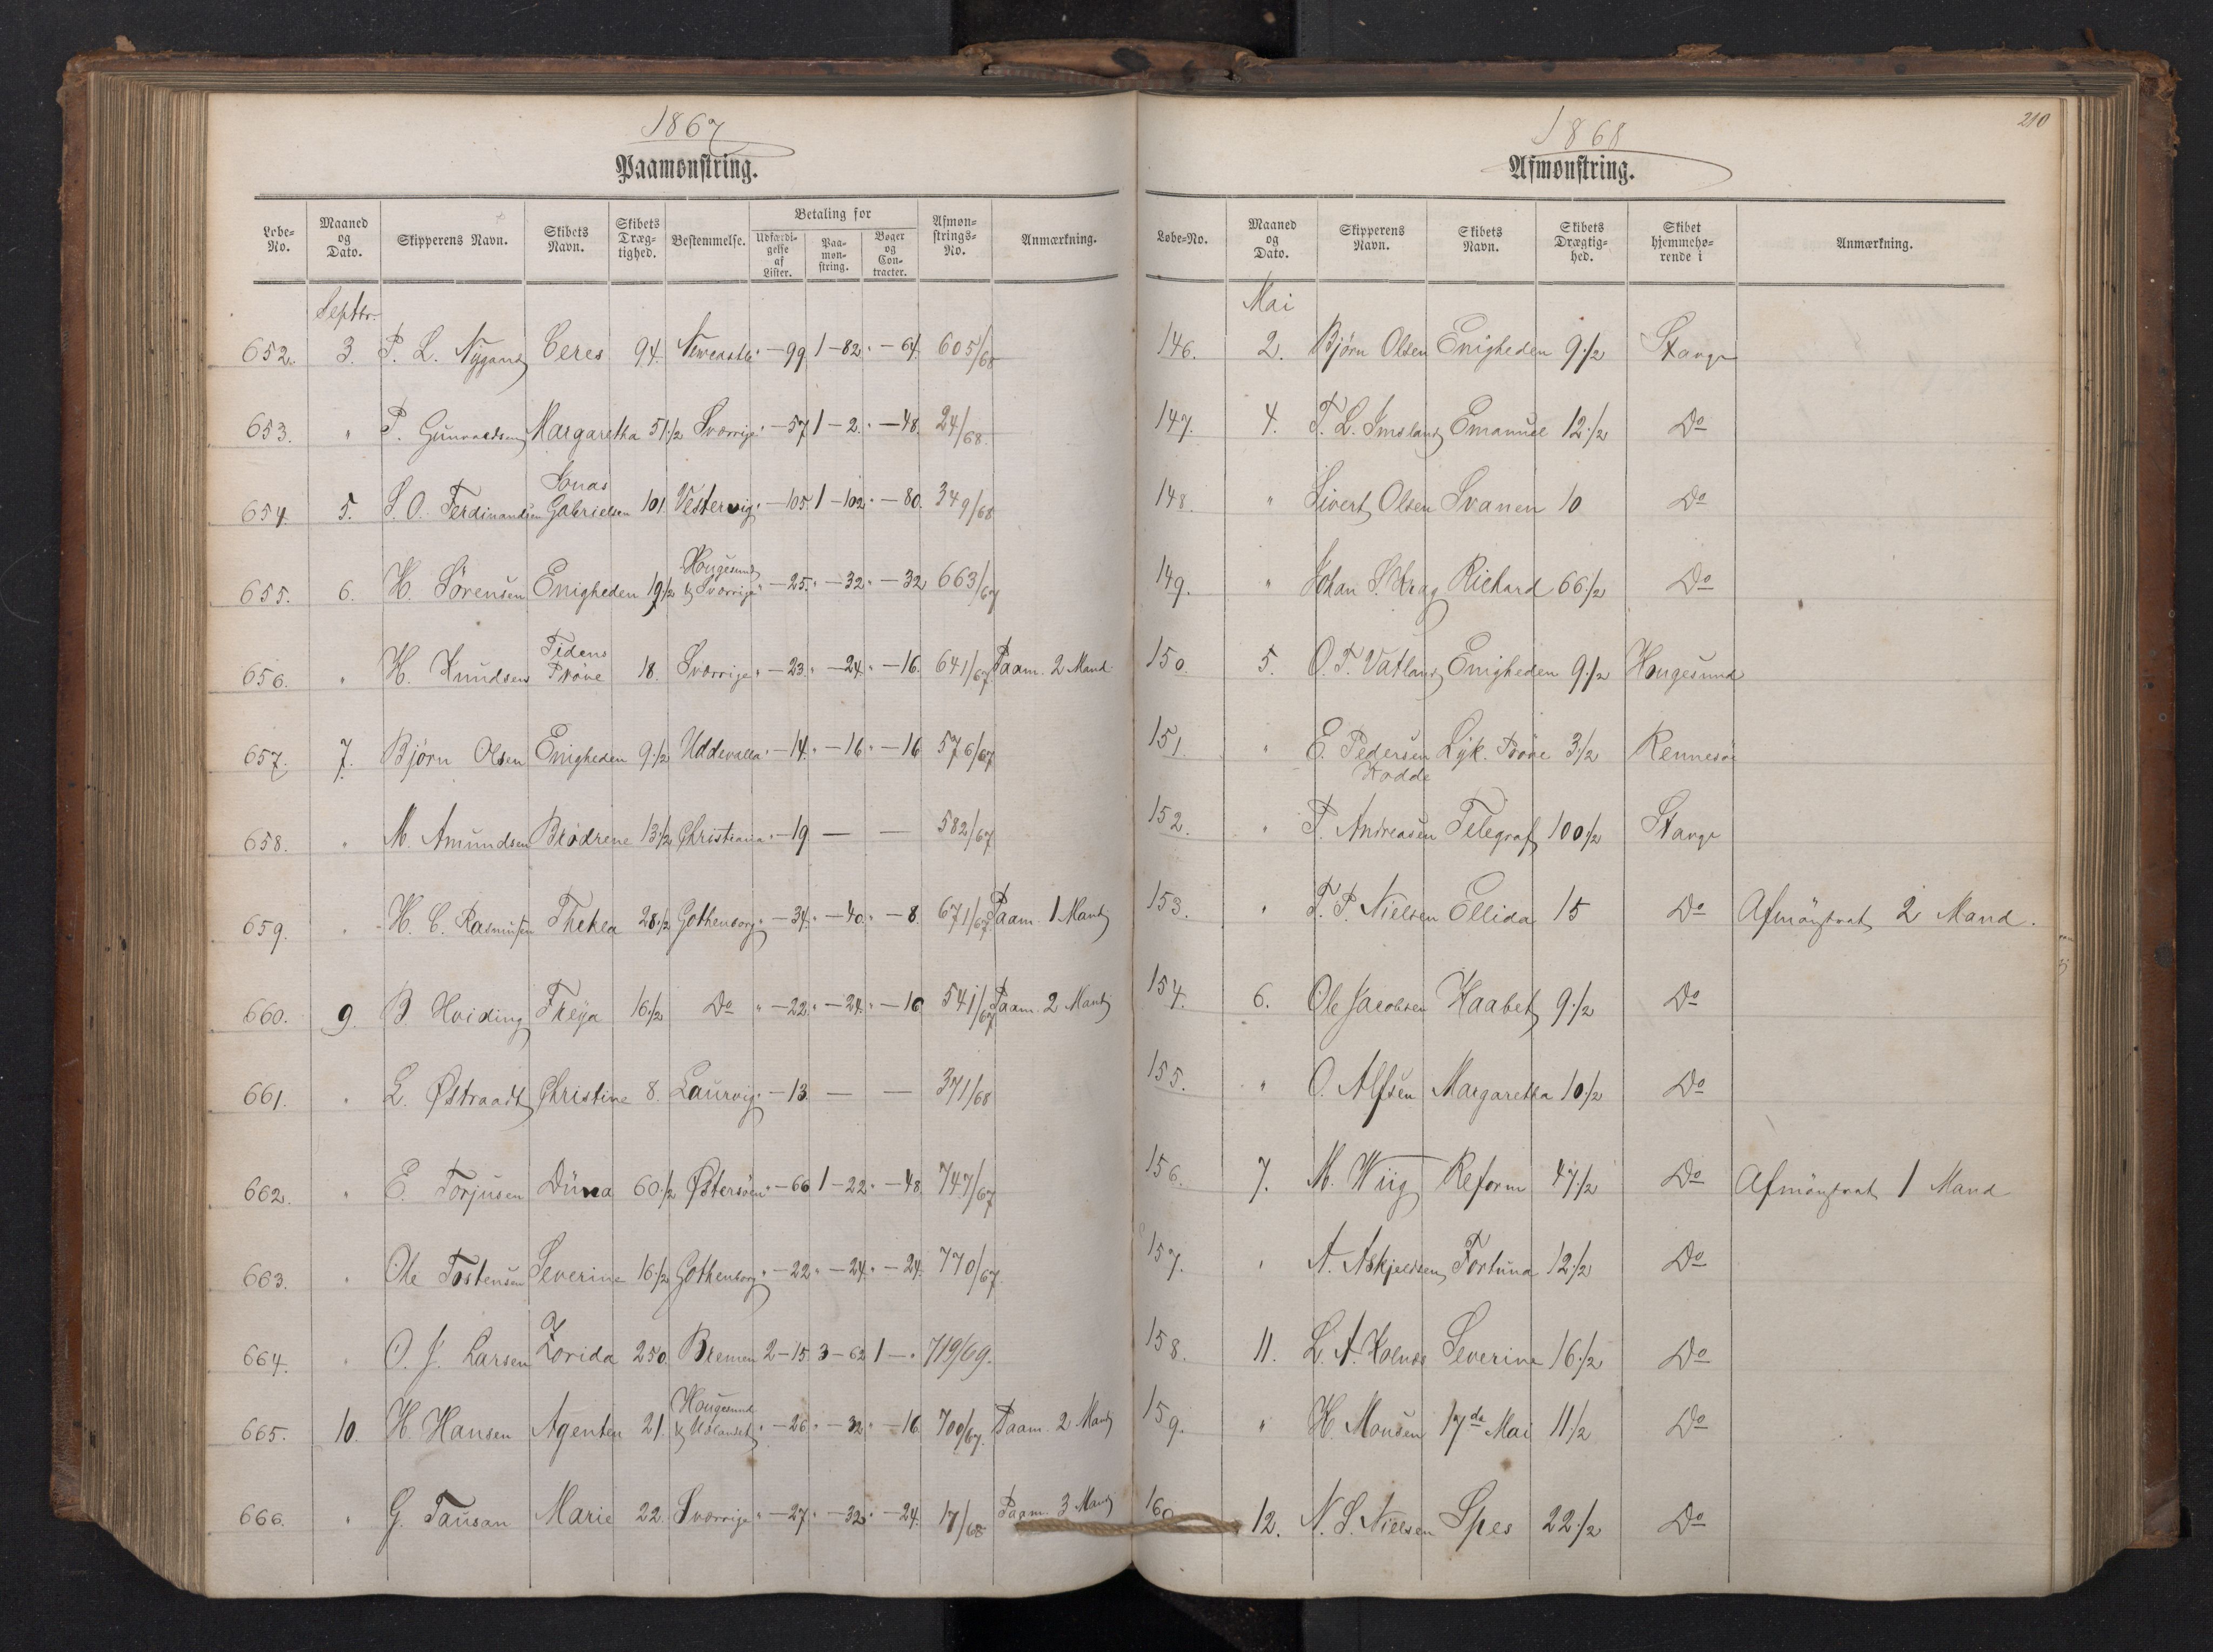 1867
Paamønstring.
Løbe-No. Maaned og Dato. Skipperens Navn. Skibets Navn. Skibets Dræg-tighed. Bestemmelse. Betaling for Udfærdi-gelse af Lister. Paa-møn-string. Bøger og Con-tracter. Afmøn-strings-No. Anmærkning.
Septbr.
652. 3. P. L. Nygaard Ceres 94. Newcastle " - 99 1 - 82 " - 64. 605/68
653. " P. Gunvaldsen Margaretha 51 1/2 Sverrige " - 57 1 - 2. " - 48. 24/68.
654. 5. S. O. Ferdinandsen Jonas Gabrielsen 101 Vestervig " - 105 1 - 102 " - 80. 349/68
655. 6. H. Sörensen Enigheden 19 1/2 Hougesund & Sverrige " - 25. " - 32 " - 32 663/67
656. " H. Knudsen Tidens Pröve 18. Sverrige " - 23. " - 24. " - 16. 641/67 Paam. 2 Mand
657. 7. Björn Olsen Enigheden 9 1/2 Uddevalla " - 14. " - 16 " - 16 576/67
658. " M. Amundsen Brödrene 13 1/2 Christiania " - 19 — — 582/67
659. " H. C. Rasmussen Thekea 28 1/2 Gothenborg " - 34. " - 40. " - 8. 671/67 Paam. 1 Mand
660. 9. B. Hviding Freya 16 1/2 Do " - 22. " - 24. " - 16 541/67 Paam. 2 Mand
661. " L. Østraadt Christine 8. Laurvig " - 13. — — 371/68
662. " E. Torjusen Düna 60 1/2 Østersöen " - 66 1 - 22 " - 48. 747/67
663. " Ole Tostensen Severine 16 1/2 Gothenborg " - 22 " - 24. " - 24. 770/67.
664. " O. J. Larsen Zorida 250. Bremen 2 - 15. 3 - 62 1 - " 719/69.
665. 10. H. Hansen Agenten 21. Hougesund & Udlandet " - 26 " - 32 " - 16. 700/67. Paam. 2 Mand
666. " G. Tausan Marie 22. Sverrige " - 27. " - 32 " - 24. 17/68 Paam. 3 Mand
210
1868
Afmønstring.
Løbe-No. Maaned og Dato. Skipperens Navn. Skibets Navn. Skibets Drægtig-hed. Skibet hjemmehø-rende i Anmærkning.
Mai
146. 2. Björn Olsen Enigheden 9 1/2 Stavgr
147. 4. T. L. Imsland Emanuel 12 1/2 Do
148. " Sivert Olsen Svanen 10 Do
149. " Johan S. Krag Richard 66 1/2 Do
150. 5. O. T. Vatland Enigheden 9 1/2 Hougesund
151. " E. Pedersen Kodde Lyk. Pröve 3 1/2 Rennesö
152. " P. Andreasen Telegraf 100 1/2 Stavgr
153. " T. P. Nielsen Ellida 15 Do Afmönstrat 2 Mand.
154. 6. Ole Jacobsen Haabet 9 1/2 Do
155. " O. Alfsen Margaretha 10 1/2 Do
156. 7. M. Wiig Reform 47 1/2 Do Afmönstrat 1 Mand
157. " A. Askjeldsen Fortuna 12 1/2 Do
158. 11. L. A. Kolnes Severine 16 1/2 Do
159. " H. Monsen 17de Mai 11 1/2 Do
160 12. N. S. Nielsen Spes 22 1/2 Do